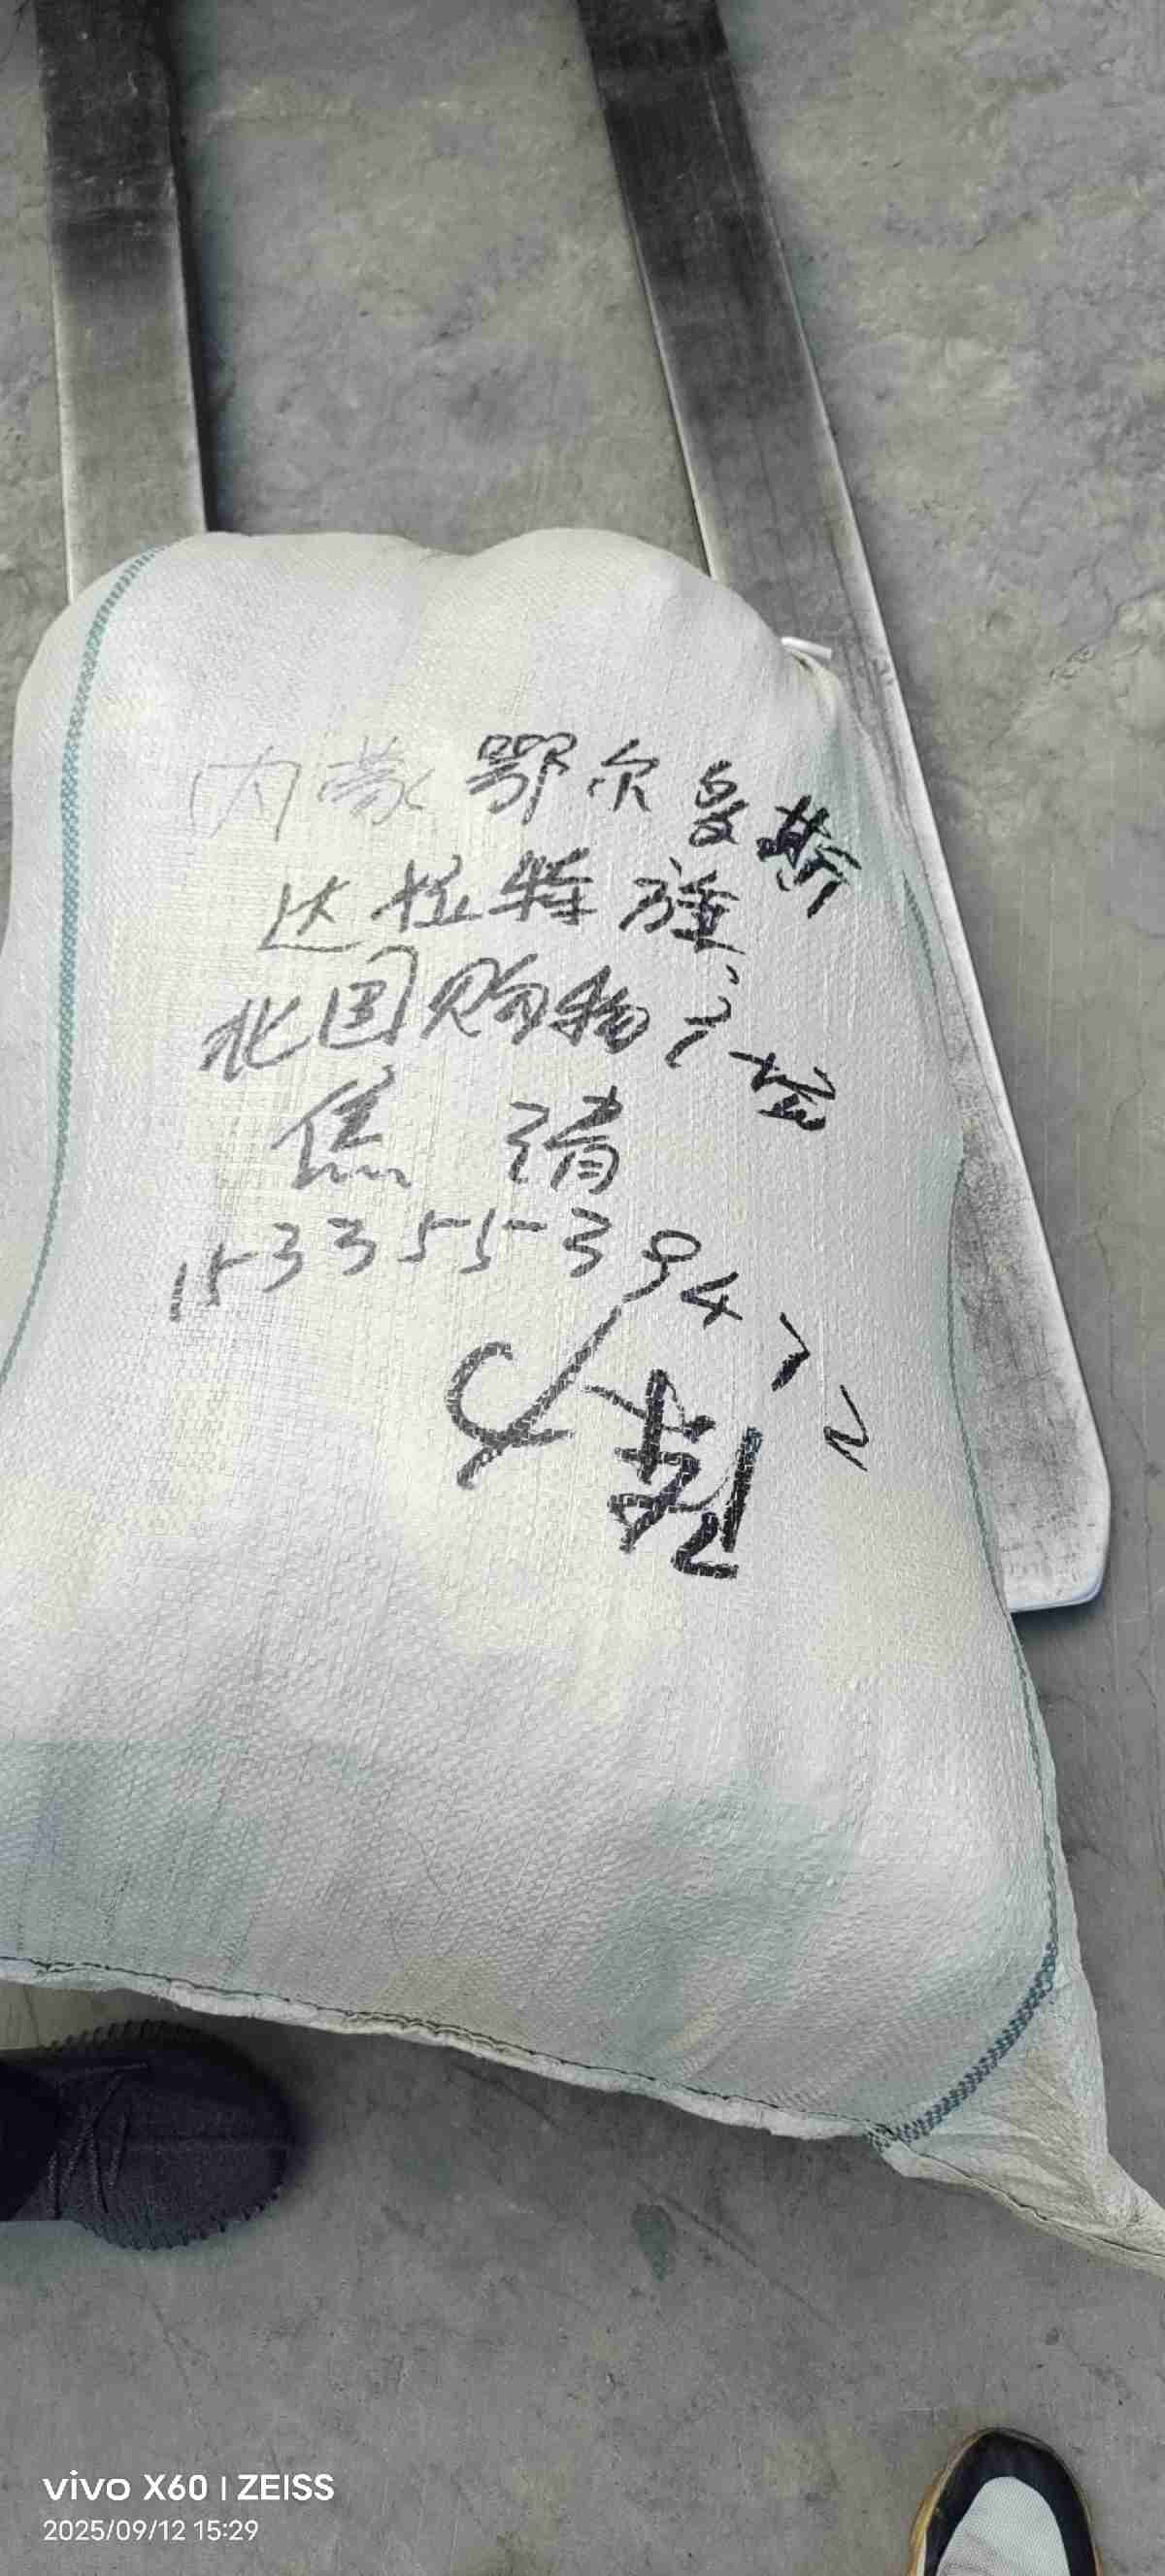 内蒙鄂尔多斯
达拉特旗
北国购物广场
焦清
15335539472
vivo X60 | ZEISS
2025/09/12 15:29